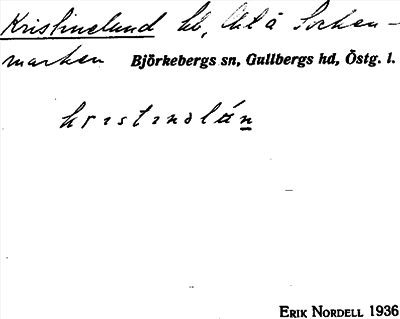 Kristinelund hb, Ukl å Socken-
marken Björkebergs sn, Gullbergs hd, Östg. l.
kristinəlán
ERIK NORDELL 1936